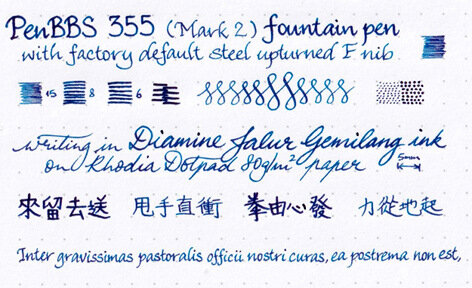 PenBBS 355 (Mark 2) fountain pen
with factory default steel upturned F nib
15 8 6
writing in Diamine Jalur Gemilang ink
on Rhodia Dotpad 80g/m² paper
5mm
來留去送 甩手直衝 拳由心發 力從地起
Inter gravissimas pastoralis officii nostri curas, ea postrema non est,